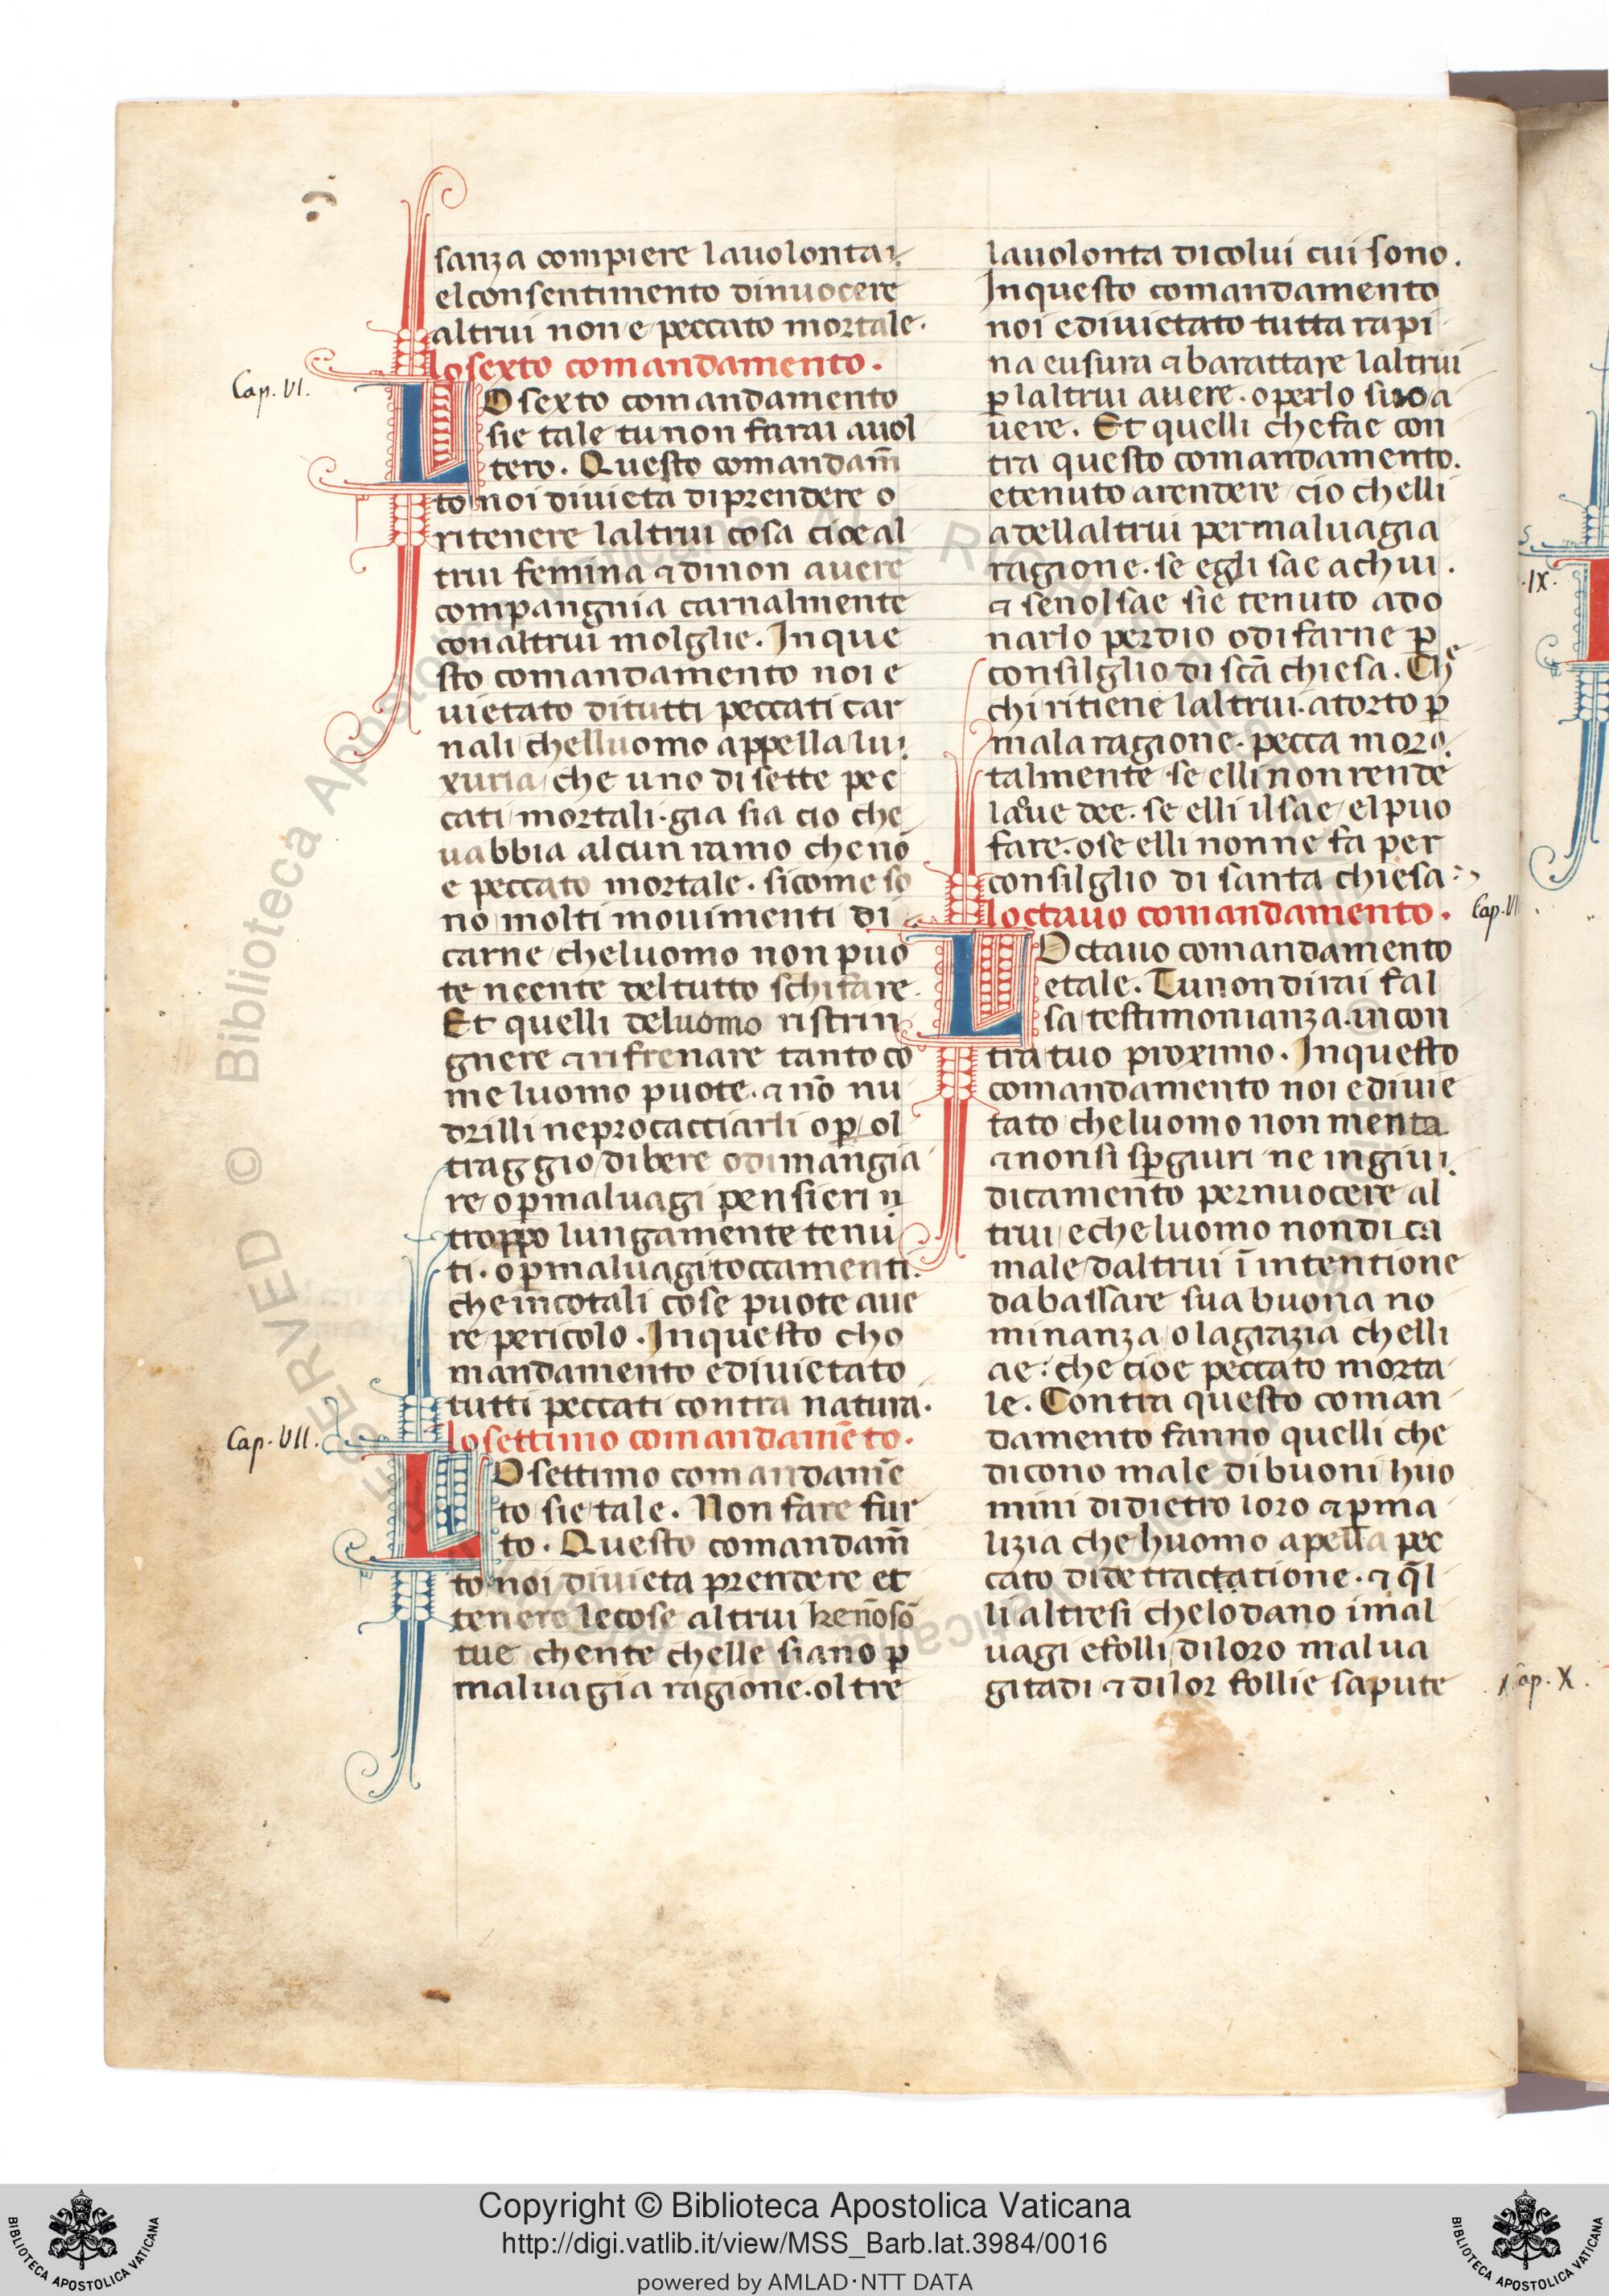 sanza compiere lauolontai
elconsentimento dinuocere
altrui non e peccato mortale.
losexto comandamento.
Cap. VI.
LO sexto comandamento
sie tale tu non farai auol
tero. Questo comandam̄
to noi diuieta diprendere o
ritenere laltrui cosa cioe al
trui femina ⁊ dinon auere
compangnia carnalmente
con altrui molglie. Inque
sto comandamento noi e
uietato ditutti peccati car
nali chelluomo appella lu
xuria che uno di sette pec
cati mortali. gia sia cio che
uabbia alcun ramo che nō
e peccato mortale. sicome so
no molti mouimenti di
carne cheluomo non puo
te neente deltutto schifare.
Et quelli deluomo ristrin
gnere ⁊ rifrenare tanto co
me luomo puote. ⁊ nō nu
drilli neprocacciarli o ꝑ ol
traggio dibere odimangia
re o ꝑ maluagi pensieri
troppo lungamente tenu
ti. o ꝑ maluagi toccamenti.
che incotali cose puote aue
re pericolo. Inquesto cho
mandamento ediuietato
tutti peccati contra natura.
losettimo comandamēto.
Cap. VII.
LO settimo comandame
to sie tale. Non fare fur
to. Questo comandam̄
to noi diuieta prendere et
tenere lecose altrui
tue chente chelle siano ꝑ
maluagia ragione. oltre
lauolonta dicolui cui sono.
Inquesto comandamento
noi ediuietato tutta rapi
na eusura ⁊ barattare laltrui
ꝑ laltrui auere. o perlo suo a
uere. Et quelli chefae con
tra questo comandamento.
etenuto arendere cio chelli
a dellaltrui per maluagia
ragione. se egli sae achui.
⁊ senolsae sie tenuto ado
narlo perdio odifarne ꝑ
consilglio di scā chiesa. Che
chi ritiene laltrui. atorto ꝑ
mala ragione. pecca mor
talmente. se elli non rende
laoue dee. se elli ilsae elpuo
fare. ose elli nonne fa per
consilglio di santa chiesa
loctauo comandamento.
Cap. VII
LOctauo comandamento
etale. Tu non dirai fal
sa testimonianza. incon
tra tuo proximo. Inquesto
comandamento noi ediuie
tato cheluomo non menta
⁊ nonsi sꝑgiuri ne ingiu
dicamento pernuocere al
trui e cheluomo nondica
male daltrui ī intentione
dabassare sua buona no
minanza o lagrazia chelli
ae: che cioe peccato morta
le. Contra questo coman
damento fanno quelli che
dicono male dibuoni huo
mini didietro loro ⁊ ꝑ ma
lizia che huomo apella pec
cato didetractatione. ⁊ q̄l
li altresi chelodano imal
uagi efolli diloro malua
gitadi ⁊ dilor follie sapute
.IX.
Cap. X.
Copyright © Biblioteca Apostolica Vaticana
http://digi.vatlib.it/view/MSS_Barb.lat.3984/0016
powered by AMLAD·NTT DATA
BIBLIOTECA APOSTOLICA VATICANA
BIBLIOTECA APOSTOLICA VATICANA